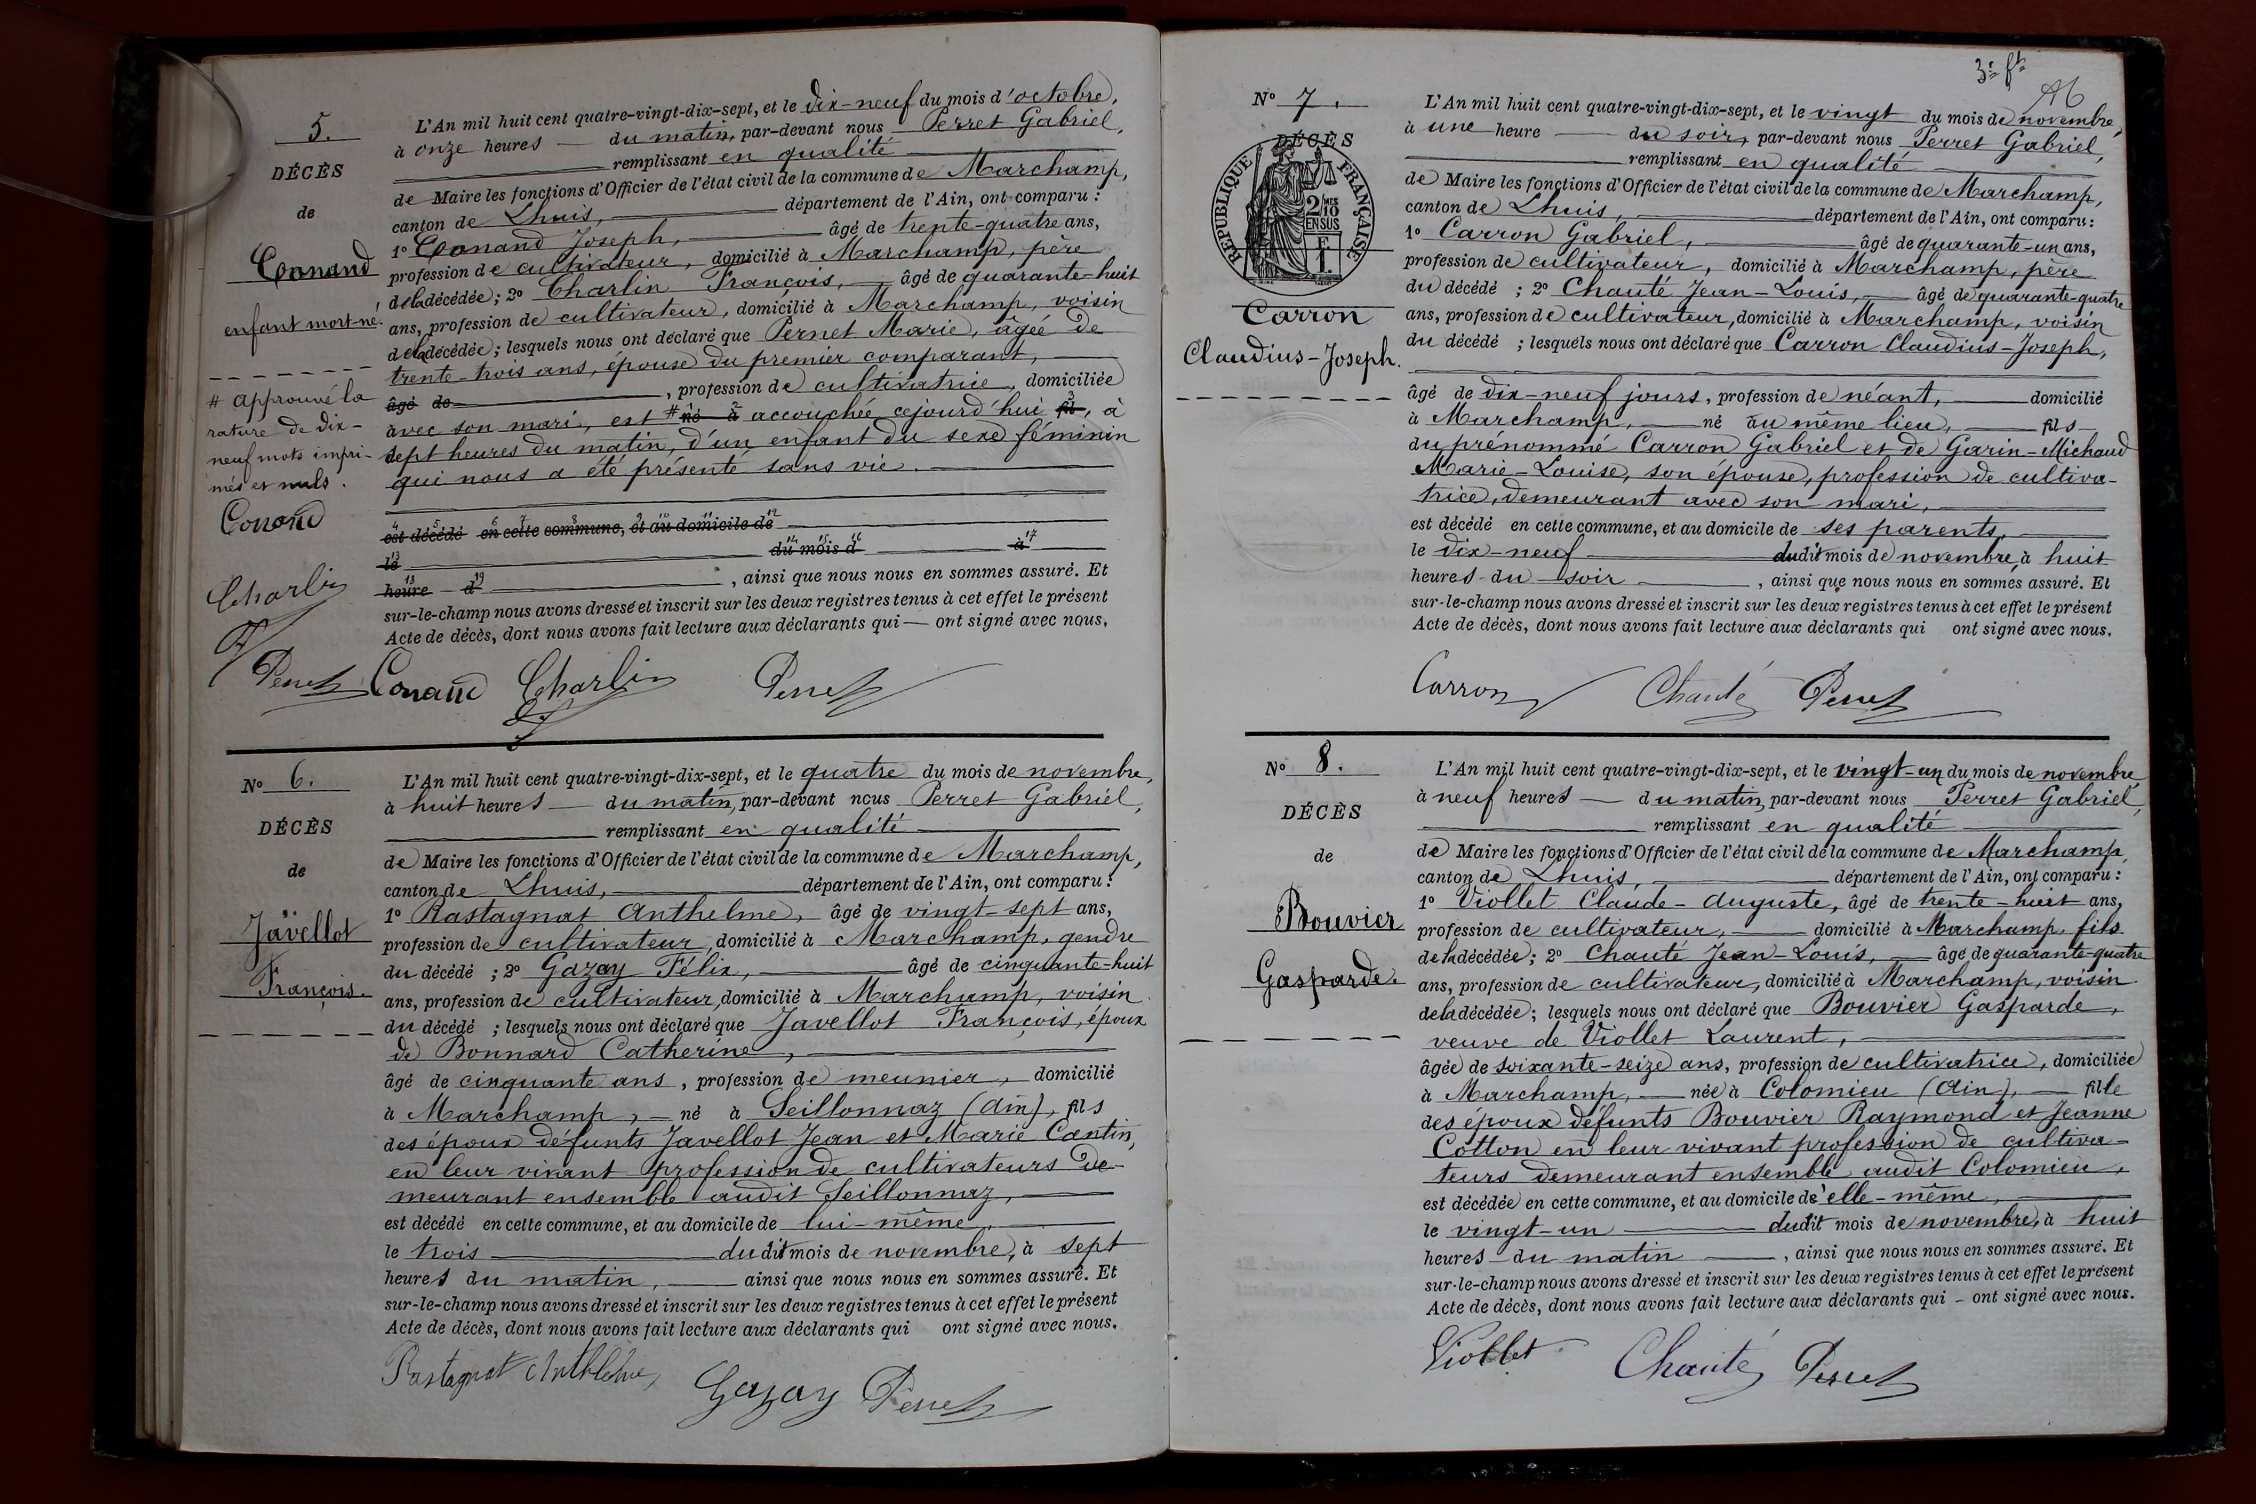 5.
DÉCÈS
de
Conand
enfant mort-né.
# approuvé la
rature de dix-
neuf mots impri-
més et nuls.
Conand
Charlin
Perret
L'An mil huit cent quatre-vingt-dix-sept, et le dix-neuf du mois d'octobre,
à onze heures du matin, par-devant nous Perret Gabriel,
remplissant en qualité
de Maire les fonctions d'Officier de l'état civil de la commune de Marchamp,
canton de Lhuis, département de l'Ain, ont comparu :
1° Conand Joseph, âgé de trente-quatre ans,
profession de cultivateur, domicilié à Marchamp, père
de la décédée; 2° Charlin François, âgé de quarante-huit
ans, profession de cultivateur, domicilié à Marchamp, voisin
de la décédée; lesquels nous ont déclaré que Pernet Marie, âgée de
trente-trois ans, épouse du premier comparant,
âgé de , profession de cultivatrice, domiciliée
avec son mari, est # né à accouchée cejourd'hui fil, à
sept heures du matin, d'un enfant du sexe féminin
qui nous a été présenté sans vie.
est décédé en cette commune, et au domicile de
le du mois d à
heure d , ainsi que nous nous en sommes assuré. Et
sur-le-champ nous avons dressé et inscrit sur les deux registres tenus à cet effet le présent
Acte de décès, dont nous avons fait lecture aux déclarants qui ont signé avec nous.
Conand Charlin Perret
N° 6.
DÉCÈS
de
Javellot
François.
L'An mil huit cent quatre-vingt-dix-sept, et le quatre du mois de novembre,
à huit heures du matin, par-devant nous Perret Gabriel,
remplissant en qualité
de Maire les fonctions d'Officier de l'état civil de la commune de Marchamp,
canton de Lhuis, département de l'Ain, ont comparu :
1° Rastagnat Anthelme, âgé de vingt-sept ans,
profession de cultivateur, domicilié à Marchamp, gendre
du décédé ; 2° Gazay Félix, âgé de cinquante-huit
ans, profession de cultivateur, domicilié à Marchamp, voisin
du décédé ; lesquels nous ont déclaré que Javellot François, époux
de Bonnard Catherine,
âgé de cinquante ans, profession de meunier, domicilié
à Marchamp, né à Seillonnaz (Ain), fils
des époux défunts Javellot Jean et Marie Cantin,
en leur vivant profession de cultivateurs de-
meurant ensemble audit Seillonnaz,
est décédé en cette commune, et au domicile de lui-même,
le trois dudit mois de novembre, à sept
heures du matin, ainsi que nous nous en sommes assuré. Et
sur-le-champ nous avons dressé et inscrit sur les deux registres tenus à cet effet le présent
Acte de décès, dont nous avons fait lecture aux déclarants qui ont signé avec nous.
Rastagnat Anthelme Gazay Perret
3e ft
N° 7.
DÉCÈS
RÉPUBLIQUE FRANÇAISE
2/10 MES
EN SUS
Carron
Claudius-Joseph.
L'An mil huit cent quatre-vingt-dix-sept, et le vingt du mois de novembre,
à une heure du soir, par-devant nous Perret Gabriel,
remplissant en qualité
de Maire les fonctions d'Officier de l'état civil de la commune de Marchamp,
canton de Lhuis, département de l'Ain, ont comparu :
1° Carron Gabriel, âgé de quarante-un ans,
profession de cultivateur, domicilié à Marchamp, père
du décédé ; 2° Chauté Jean-Louis, âgé de quarante-quatre
ans, profession de cultivateur, domicilié à Marchamp, voisin
du décédé ; lesquels nous ont déclaré que Carron Claudius-Joseph,
âgé de dix-neuf jours, profession de néant, domicilié
à Marchamp, né au même lieu, fils
du prénommé Carron Gabriel et de Garin-Michaud
Marie-Louise, son épouse, profession de cultiva-
trice, demeurant avec son mari,
est décédé en cette commune, et au domicile de ses parents,
le dix-neuf dudit mois de novembre, à huit
heures du soir , ainsi que nous nous en sommes assuré. Et
sur-le-champ nous avons dressé et inscrit sur les deux registres tenus à cet effet le présent
Acte de décès, dont nous avons fait lecture aux déclarants qui ont signé avec nous.
Carron Chauté Perret
N° 8.
DÉCÈS
de
Bouvier
Gasparde.
L'An mil huit cent quatre-vingt-dix-sept, et le vingt-un du mois de novembre
à neuf heures du matin, par-devant nous Perret Gabriel,
remplissant en qualité
de Maire les fonctions d'Officier de l'état civil de la commune de Marchamp,
canton de Lhuis, département de l'Ain, ont comparu :
1° Viollet Claude-Auguste, âgé de trente-huit ans,
profession de cultivateur, domicilié à Marchamp, fils
de la décédée; 2° Chauté Jean-Louis, âgé de quarante-quatre
ans, profession de cultivateur, domicilié à Marchamp, voisin
de la décédée; lesquels nous ont déclaré que Bouvier Gasparde,
veuve de Viollet Laurent,
âgée de soixante-seize ans, profession de cultivatrice, domiciliée
à Marchamp, née à Colomieu (Ain), fille
des époux défunts Bouvier Raymond et Jeanne
Cotton en leur vivant profession de cultiva-
teurs demeurant ensemble audit Colomieu,
est décédée en cette commune, et au domicile d'elle-même,
le vingt-un dudit mois de novembre, à huit
heures du matin , ainsi que nous nous en sommes assuré. Et
sur-le-champ nous avons dressé et inscrit sur les deux registres tenus à cet effet le présent
Acte de décès, dont nous avons fait lecture aux déclarants qui ont signé avec nous.
Viollet Chauté Perret